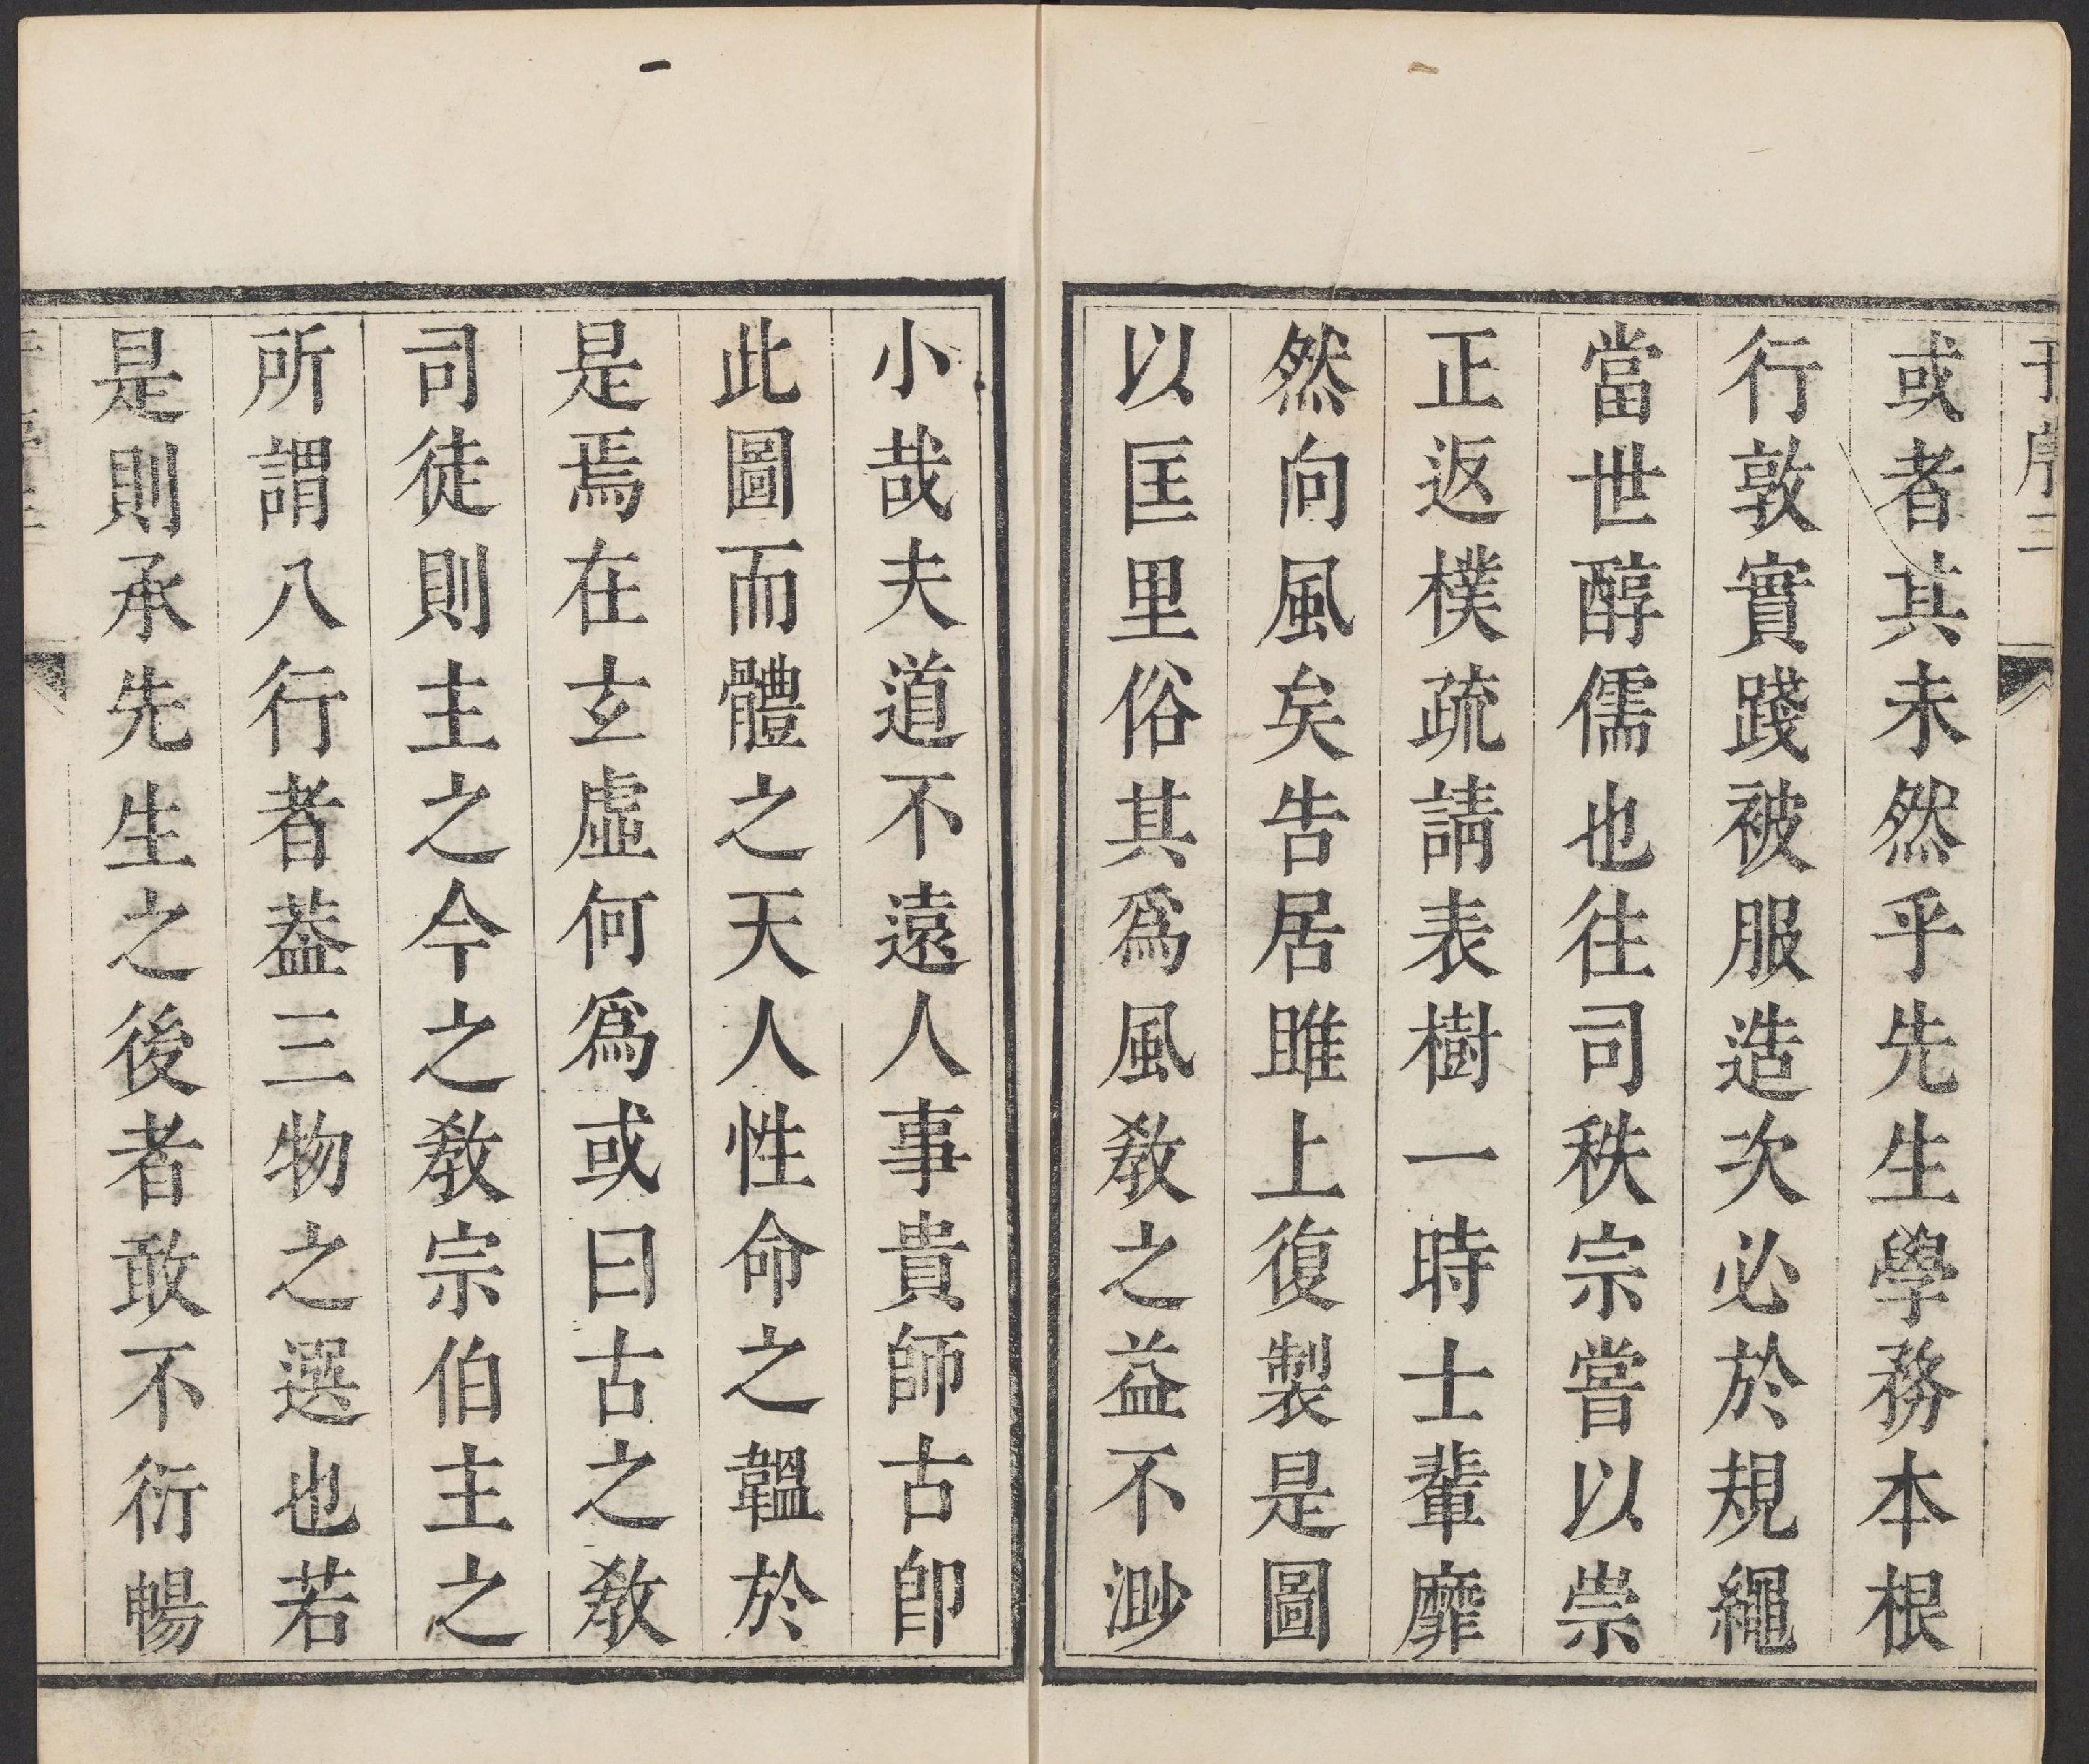 或者其未然乎先生學務本根
行敦實踐被服造次必於規繩
當世醇儒也往司秩宗嘗以崇
正返樸疏請表樹一時士輩靡
然向風矣告居雎上復製是圖
以匡里俗其爲風敎之益不渺
小哉夫道不遠人事貴師古卽
此圖而體之天人性命之韞於
是焉在玄虛何爲或曰古之敎
司徒則主之今之敎宗伯主之
所謂八行者葢三物之選也若
是則承先生之後者敢不衍暢